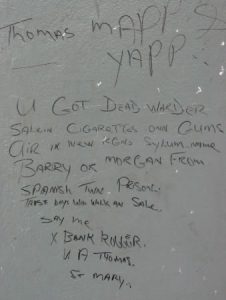 THOMAS MAPP &
YAPP..
U GOT DEAD WARDER
SALEIN CIGARETTES OWN GUMS
AIR IN NEW SYLUM
BARRY OR MORGAN FROM
SPANISH TWN. PRISON.
THOSE BOYS WALK AN SALE.
SAY ME
X BANK ROBBER.
U A THOMAS.
ST MARY..